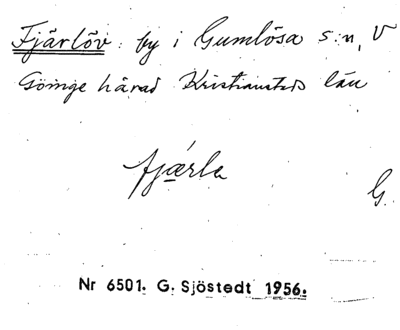 Fjärlöv: by i Gumlösa s:n, V
Göinge härad Kristianstads län
fjárla
G.
Nr 6501. G. Sjöstedt 1956.